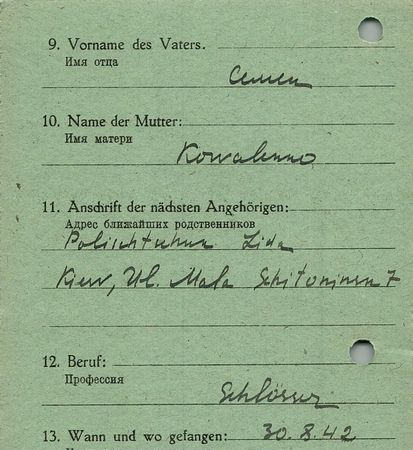 9. Vorname des Vaters.
Имя отца
Семен
10. Name der Mutter:
Имя матери
Kowalenno
11. Anschrift der nächsten Angehörigen:
Адрес ближайших родственников
Lida
Kiew, Ul. Mala Schitominen 7
12. Beruf:
Профессия
Schlösser
13. Wann und wo gefangen: 30.8.42